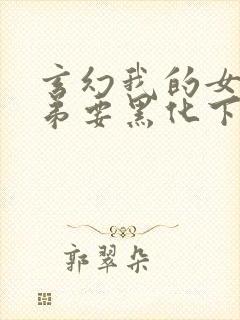 玄幻我的女
弟要黑化下
郭翠朵